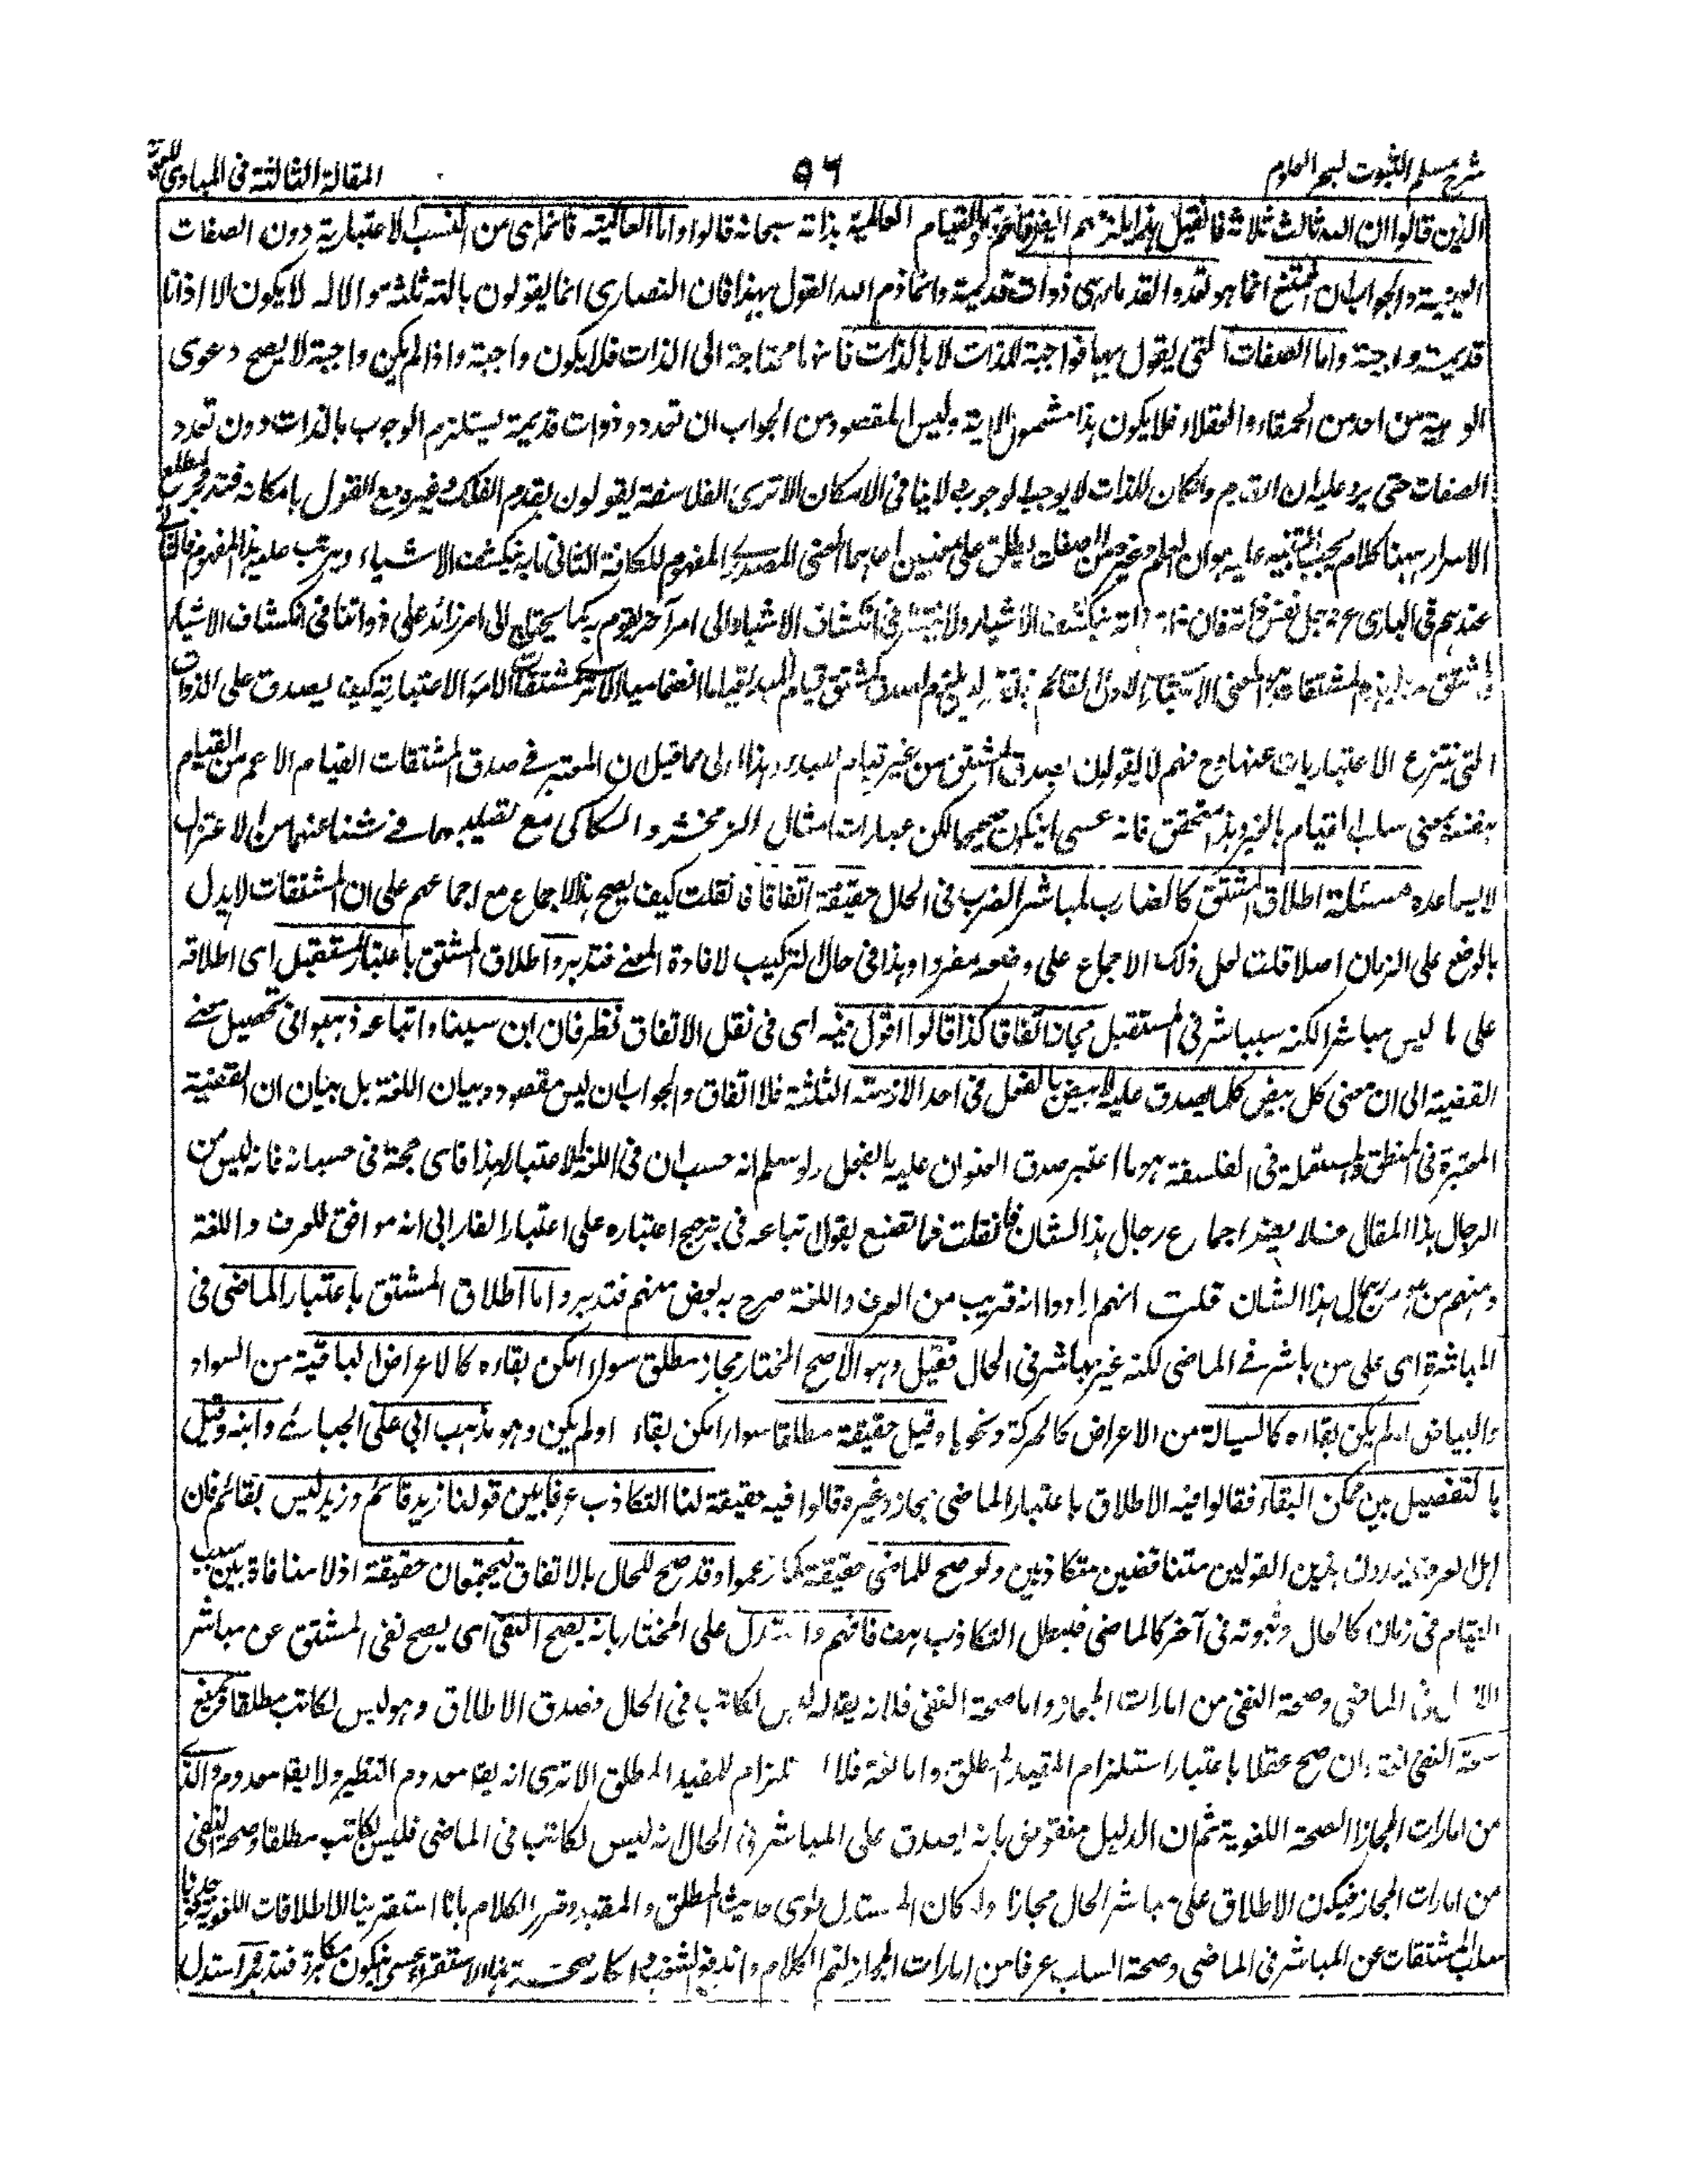 شرح مسلم الثبوت لبحر العلوم
٩٦
المقالة الثالثة فى المبادى اللغوية
الذين قالوا ان الله ثالث ثلاثة فان قيل هذا يلزمهم ايضا فانهم بالقيام العالمية بذاته سبحانه قالوا واما العالمية فانما هى من النسب الاعتبارية دون الصفات
العينية والجواب ان الممتنع انما هو تعدد القدماء هى ذوات قديمة وانما ذم الله القول بهذا فان النصارى انما يقولون بالهة ثلثة هو الاله لا يكون الا اذ ذاتا
قديمة واجبة واما الصفات التى يقول بها فواجبة للذات لا بالذات فانها محتاجة الى الذات فلا يكون واجبة واذا لم يكن واجبة لا يصح دعوى
الوهية من احد من الحمقاء والعقلاء فلا يكون هذا مشمول الاية وليس المقصود من الجواب ان تعدد ذوات قديمة يستلزم الوجوب بالذات دون تعدد
الصفات حتى يرد عليه ان القدم وان كان للذات لا يوجب الوجوب لا ينافى الامكان الا ترى الفلاسفة يقولون بقدم الفلك وغيره مع القول بامكانه فتدبر
الاسرار ههنا كلام يجب التنبيه عليه هو ان العلم وغيره من الصفات يطلق على معنيين احدهما المعنى المصدرى المفهوم للكافة الثانى ما به ينكشف الاشياء ويترتب عليه هذا المفهوم
عندهم فى البارى عز وجل نفس ذاته فان ذاته بذاته ينكشف الاشياء ولا يفتقر فى انكشاف الاشياء الى امر آخر يقوم به كما يحتاج الى امر زائد على ذواتنا فى انكشاف الاشياء
قيام المبدء قياما انضماميا الا ترى مشتقات الامور الاعتبارية كيف يصدق على الذوات
التى ينتزع الاعتباريات عنها وح فهم لا يقولون بصدق المشتق من غير قيام المبدء وهذا اولى مما قيل ان المعتبر فى صدق المشتقات القيام الاعم من القيام
بنفسه بمعنى سلب القيام بالغير وهذا متحقق فانه عسى ان يكون صحيحا لكن عبارات امثال الزمخشرى والسكاكى مع تصلبهما فى شناعتهما من الاعتزال
لا يساعده مسئلة اطلاق المشتق كالضارب لمباشر الضرب فى الحال حقيقة اتفاقا فان قلت كيف يصح هذا الاجماع مع اجماعهم على ان المشتقات لا يدل
بالوضع على الزمان اصلا قلت لعل ذلك الاجماع على وضعه مفردا وهذا فى حال التركيب لافادة المعنى فتدبر واطلاق المشتق باعتبار المستقبل اى اطلاقه
على ما ليس مباشرا لكنه سيباشر فى المستقبل مجاز اتفاقا كذا قالوا اقول فيه اى فى نقل الاتفاق نظر فان ابن سينا واتباعه ذهبوا فى تحصيل معنى
القضية الى ان معنى كل ابيض كلما يصدق عليه الابيض بالفعل فى احد الازمنة الثلثة فلا اتفاق والجواب ان ليس مقصوده بيان اللغة بل بيان ان القضية
المعتبرة فى المنطق والمستعملة فى الفلسفة هو ما اعتبر صدق العنوان عليه بالفعل ولو سلم انه حسب ان فى اللغة الاعتبار لهذا فاى حجة فى حسبانه فانه ليس من
الرجال هذا المقال فلا يضر اجماع رجال هذا الشان فان قلت فما تصنع بقول اتباعه فى ترجيح اعتباره على اعتبار الفارابى انه موافق للعرف واللغة
ومنهم من هو من رجال هذا الشان قلت انهم ارادوا انه قريب من العرف واللغة صرح به بعض منهم فتدبر واما اطلاق المشتق باعتبار الماضى فى
المباشرة اى على من باشر فى الماضى لكنه غير مباشر فى الحال فقيل وهو الاصح المختار مجاز مطلق سواء امكن بقاءه كالاعراض الباقية من السواد
والبياض او لم يكن بقاءه كالسيالة من الاعراض كالحركة ونحوها وقيل حقيقة مطلقا سواء امكن بقاء او لم يكن وهو مذهب ابى على الجبائى وابنه وقيل
بالتفصيل بين ممكن البقاء فقالوا فيه الاطلاق باعتبار الماضى مجاز وغيره قالوا فيه حقيقة لنا التكاذب عرفا بين قولنا زيد قائم وزيد ليس بقائم فان
اهل العرف يرون هذين القولين متناقضين متكاذبين ولو صح للماضى حقيقة كما زعموا وقد صح للحال بالاتفاق ليجتمعان حقيقة اذ لا منافاة بين سلب
القيام فى زمان كالحال وثبوته فى آخر كالماضى فيبطل التكاذب هف فافهم واستدل على المختار بانه يصح النفى اى يصح نفى المشتق عن مباشر
الاصل فى الماضى وصحة النفى من امارات المجاز واما صحة النفى فلانه يقال له ليس بكاتب فى الحال وصدق الاطلاق وهو ليس بكاتب مطلقا ويمنع
صحة النفى لغة وان صح عقلا باعتبار استلزام المقيد المطلق واما لغة فلا استلزام للمقيد المطلق الا ترى انه يقال معدوم النظير ولا يقال معدوم والذى
من امارات المجاز الصحة اللغوية ثم ان الدليل منقوض بانه يصدق على المباشر فى الحال انه ليس بكاتب فى الماضى فليس بكاتب مطلقا وصحة النفى
من امارات المجاز فيكون الاطلاق على مباشر الحال مجازا ولو كان المستدل طوى حديث المطلق والمقيد وقرر الكلام بانا استقرينا الاطلاقات اللغوية فوجدنا
سلب المشتقات عن المباشر فى الماضى وصحة السلب عرفا من امارات المجاز لتم الكلام واندفع النقض وانكار صحة هذا الاستقراء عسى ان يكون مكابرة فتدبر واستدل